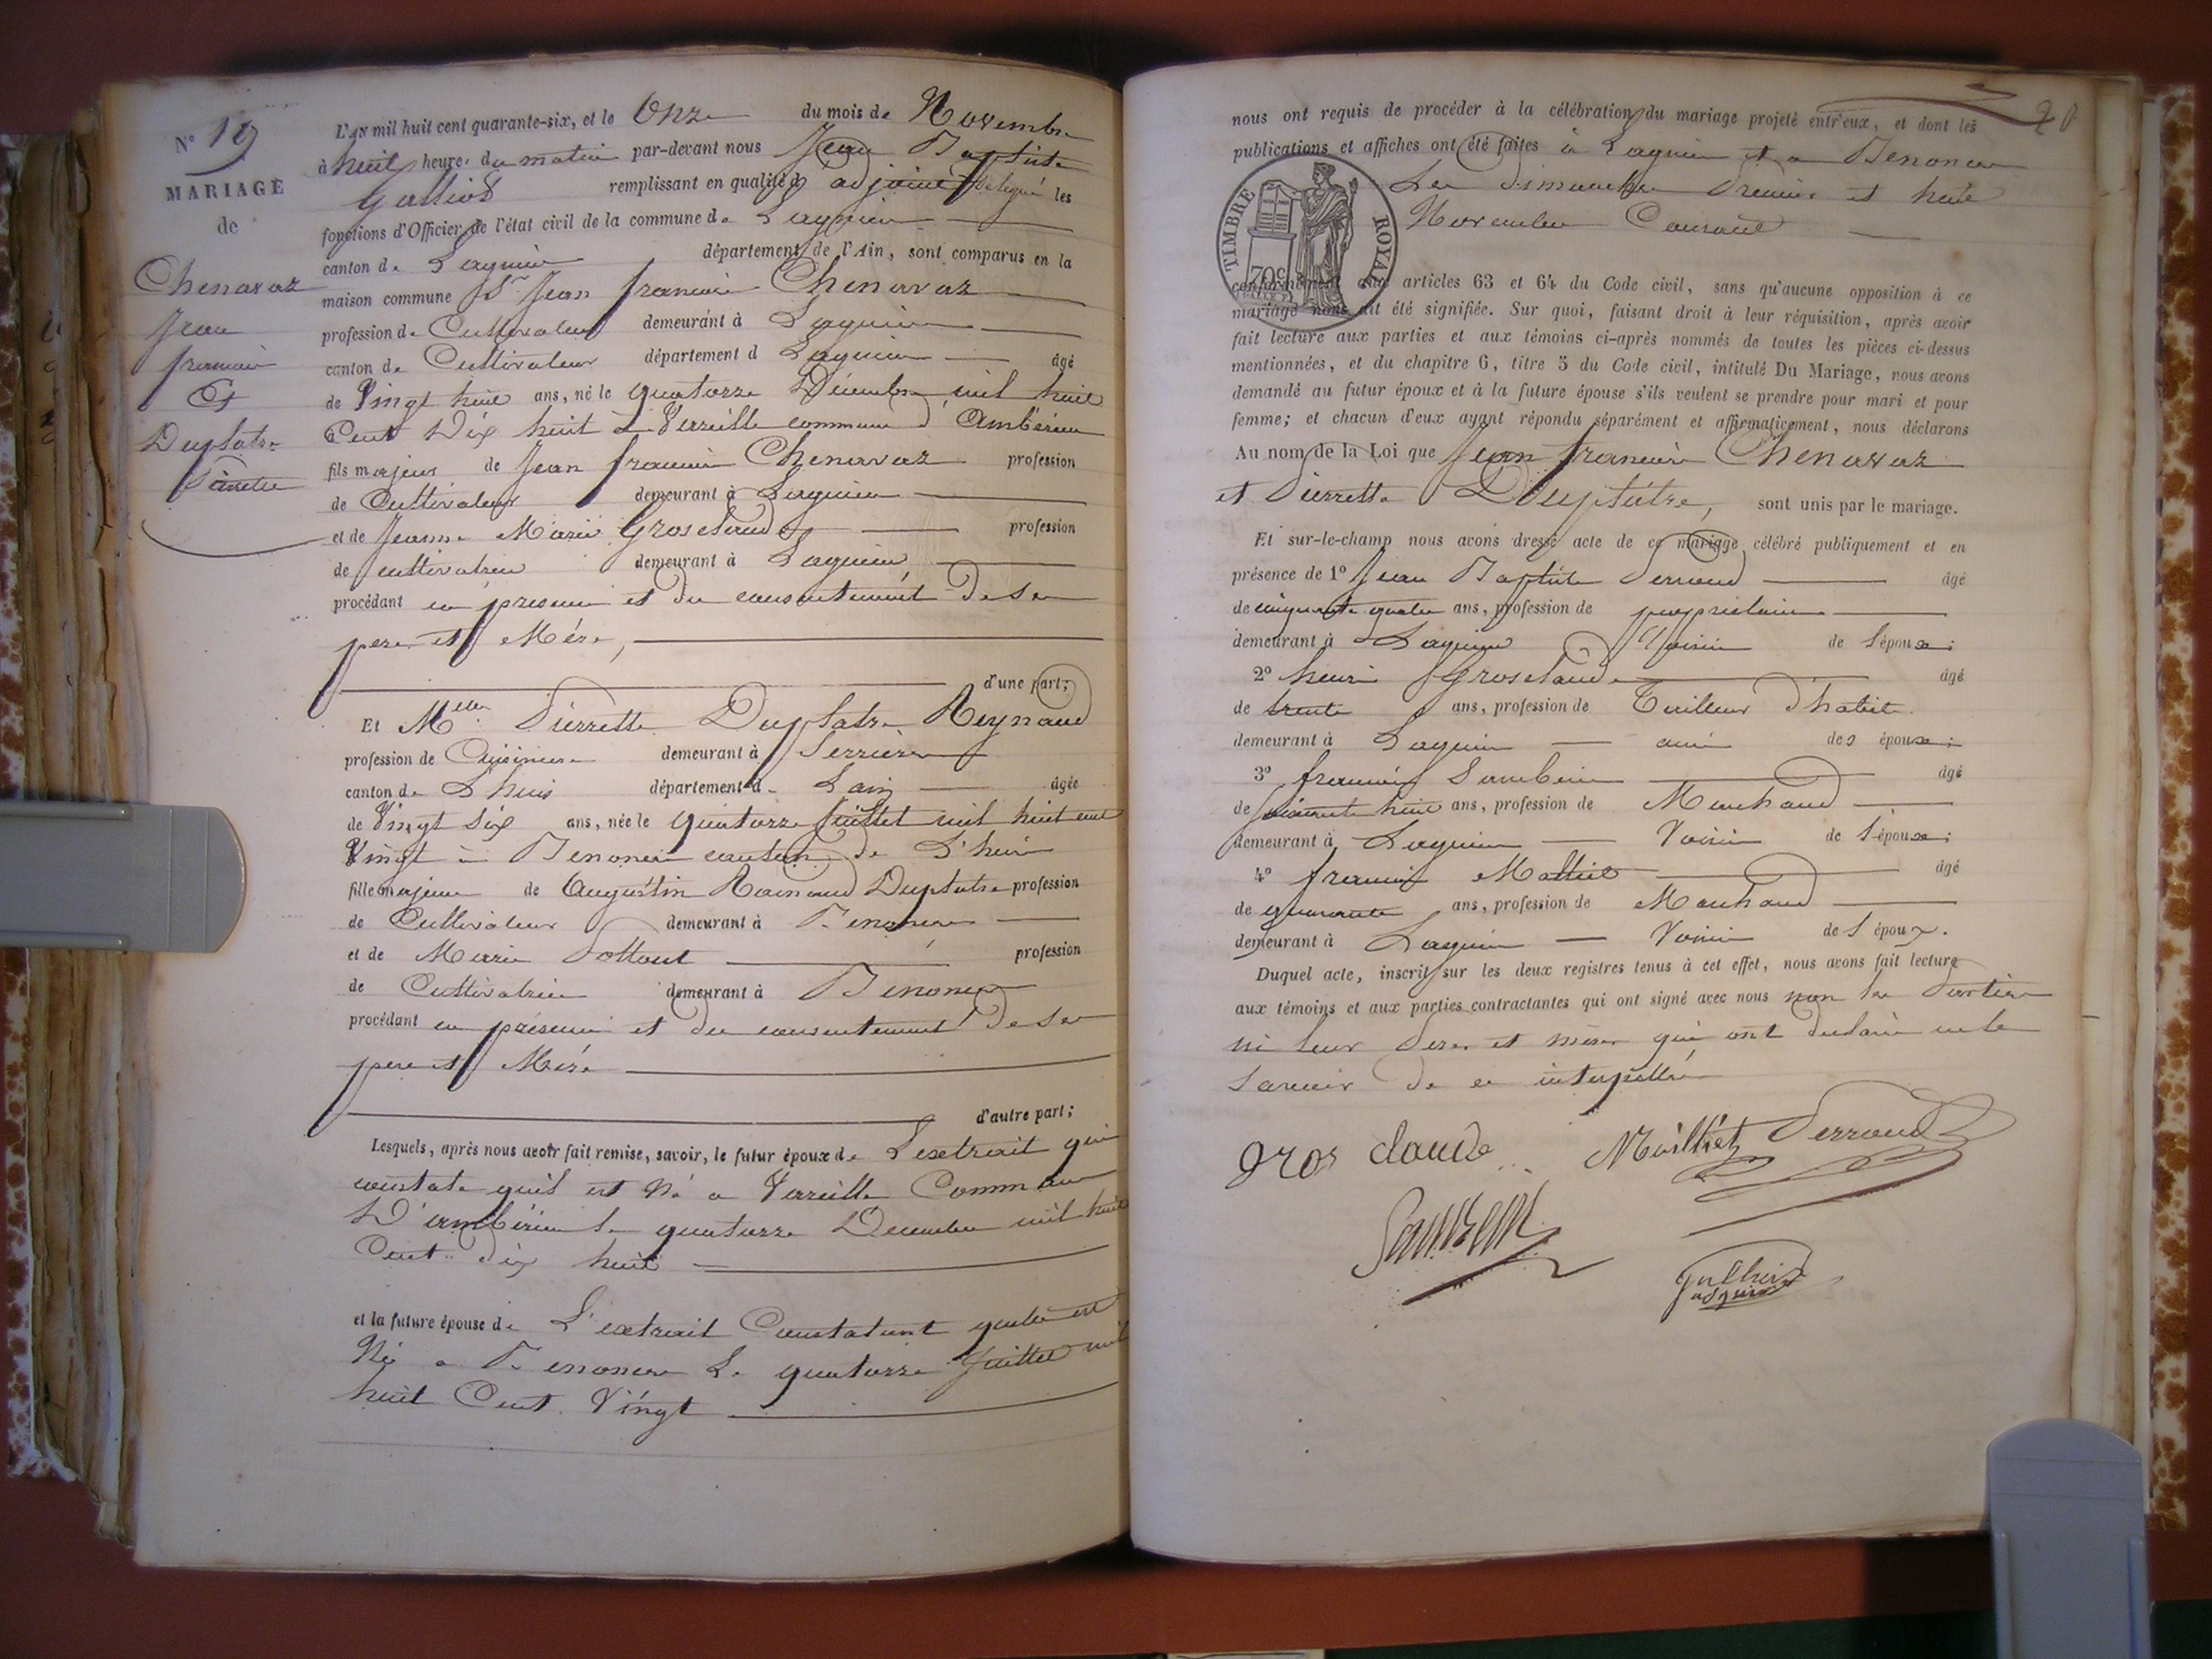 N° 19
MARIAGE
de
Chenavaz
Jean
francois
Et
Duplatre
Pierrette
L'AN mil huit cent quarante-six, et le Onze du mois de Novembre
à huit heures du matin par-devant nous Jean Baptiste
Galliot remplissant en qualité d' adjoint délégué les
fonctions d'Officier de l'état civil de la commune de Lagnieu
canton de Lagnieu département de l'Ain, sont comparus en la
maison commune Sr Jean francois Chenavaz
profession de Cultivateur demeurant à Lagnieu
canton de Cultivateur département d Lagnieu âgé
de Vingt huit ans, né le quatorze Décembre mil huit
Cent Dix huit à Vareille commune d'Ambérieu
fils majeur de Jean francois Chenavaz profession
de Cultivateur demeurant à Lagnieu
et de Jeanne Marie Grosclaude profession
de cultivatrice demeurant à Lagnieu
procédant en présence et du consentement de ses
pere et Mére,
d'une part;
Et Melle Pierrette Duplatre Reynaud
profession de Cuisiniere demeurant à Serrières
canton de Lhuis département de Lain âgée
de Vingt Six ans, née le quatorze Juillet mil huit cent
Vingt à Benonces canton de L'huis
fille majeure de Augustin Rainaud Duplatre profession
de Cultivateur demeurant à Benonces
et de Marie Pottout profession
de Cultivatrice demeurant à Benonces
procédant en présence et du consentement de ses
pere et Mére
d'autre part;
Lesquels, après nous avoir fait remise, savoir, le futur époux de L'extrait qui
constate quil est Né a Vareille Commune
D'ambérieu le quatorze Decembre mil huit
Cent dix huit
et la future épouse de L'extrait Constatant quelle est
Née a Benonces Le quatorze Juillet mil
huit Cent Vingt
20
nous ont requis de procéder à la célébration du mariage projeté entr'eux, et dont les
publications et affiches ont été faites à Lagnieu et a Benonces
Les dimanches Premier et huit
Novembre Courant
TIMBRE ROYAL
70c
conformément aux articles 63 et 64 du Code civil, sans qu'aucune opposition à ce
mariage nous ait été signifiée. Sur quoi, faisant droit à leur réquisition, après avoir
fait lecture aux parties et aux témoins ci-après nommés de toutes les pièces ci-dessus
mentionnées, et du chapitre 6, titre 5 du Code civil, intitulé Du Mariage, nous avons
demandé au futur époux et à la future épouse s'ils veulent se prendre pour mari et pour
femme; et chacun d'eux ayant répondu séparément et affirmativement, nous déclarons
Au nom de la Loi que Jean francois Chenavaz
et Pierrette Duplatre, sont unis par le mariage.
Et sur-le-champ nous avons dressé acte de ce mariage célébré publiquement et en
présence de 1° Jean Baptiste Perraud âgé
de cinquante quatre ans, profession de proprietaire
demeurant à Lagnieu Voisin de l'époux;
2° henri Grosclaude âgé
de trente ans, profession de Tailleur d'habit
demeurant à Lagnieu ami des époux;
3° francois Sambein âgé
de soixante huit ans, profession de Marchand
demeurant à Lagnieu Voisin de l'époux;
4° francois âgé
de quarante ans, profession de Marchand
demeurant à Lagnieu Voisin de l'époux.
Duquel acte, inscrit sur les deux registres tenus à cet effet, nous avons fait lecture
aux témoins et aux parties contractantes qui ont signé avec nous non les Parties
ni leur Peres et meres qui ont declaré ne le
Savoir de ce interpellés
gros claude Perraud
Sambein
Galliot
adjoint